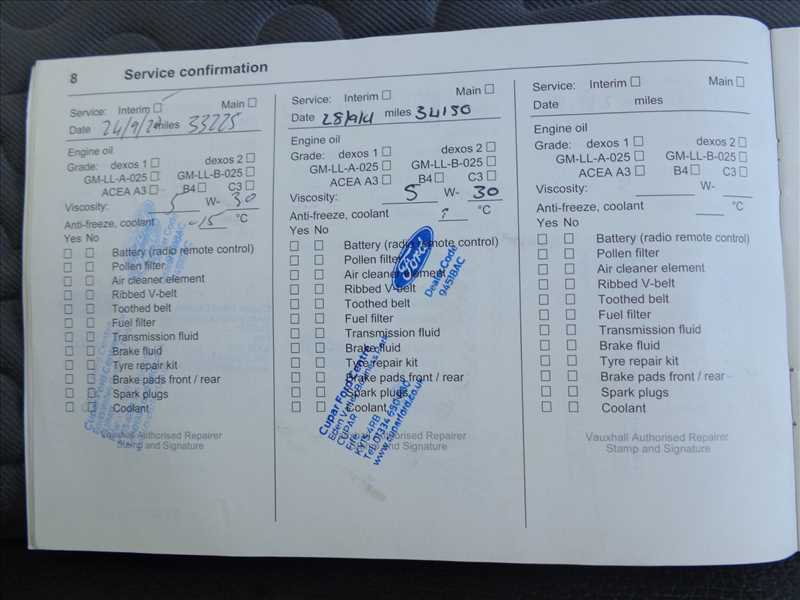 8 Service confirmation
Service: Interim Main
Date miles 33225
Engine oil
Grade: dexos 1 dexos 2
GM-LL-A-025 GM-LL-B-025
ACEA A3 B4 C3
Viscosity: 5 W- 30
Anti-freeze, coolant -15 °C
Yes No
Battery (radio remote control)
Pollen filter
Air cleaner element
Ribbed V-belt
Toothed belt
Fuel filter
Transmission fluid
Brake fluid
Tyre repair kit
Brake pads front / rear
Spark plugs
Coolant
Vauxhall Authorised Repairer
Stamp and Signature
Service: Interim Main
Date miles 34150
Engine oil
Grade: dexos 1 dexos 2
GM-LL-A-025 GM-LL-B-025
ACEA A3 B4 C3
Viscosity: 5 W- 30
Anti-freeze, coolant °C
Yes No
Battery (radio remote control)
Pollen filter
Air cleaner element
Ribbed V-belt
Toothed belt
Fuel filter
Transmission fluid
Brake fluid
Tyre repair kit
Brake pads front / rear
Spark plugs
Coolant
Vauxhall Authorised Repairer
Stamp and Signature
Ford
Dealer Code
94518AC
Cupar Ford Centre
Eden Valley Business Park
CUPAR
Fife
KY15 4RB
www.cuparford.co.uk
Service: Interim Main
Date miles
Engine oil
Grade: dexos 1 dexos 2
GM-LL-A-025 GM-LL-B-025
ACEA A3 B4 C3
Viscosity: W-
Anti-freeze, coolant °C
Yes No
Battery (radio remote control)
Pollen filter
Air cleaner element
Ribbed V-belt
Toothed belt
Fuel filter
Transmission fluid
Brake fluid
Tyre repair kit
Brake pads front / rear
Spark plugs
Coolant
Vauxhall Authorised Repairer
Stamp and Signature